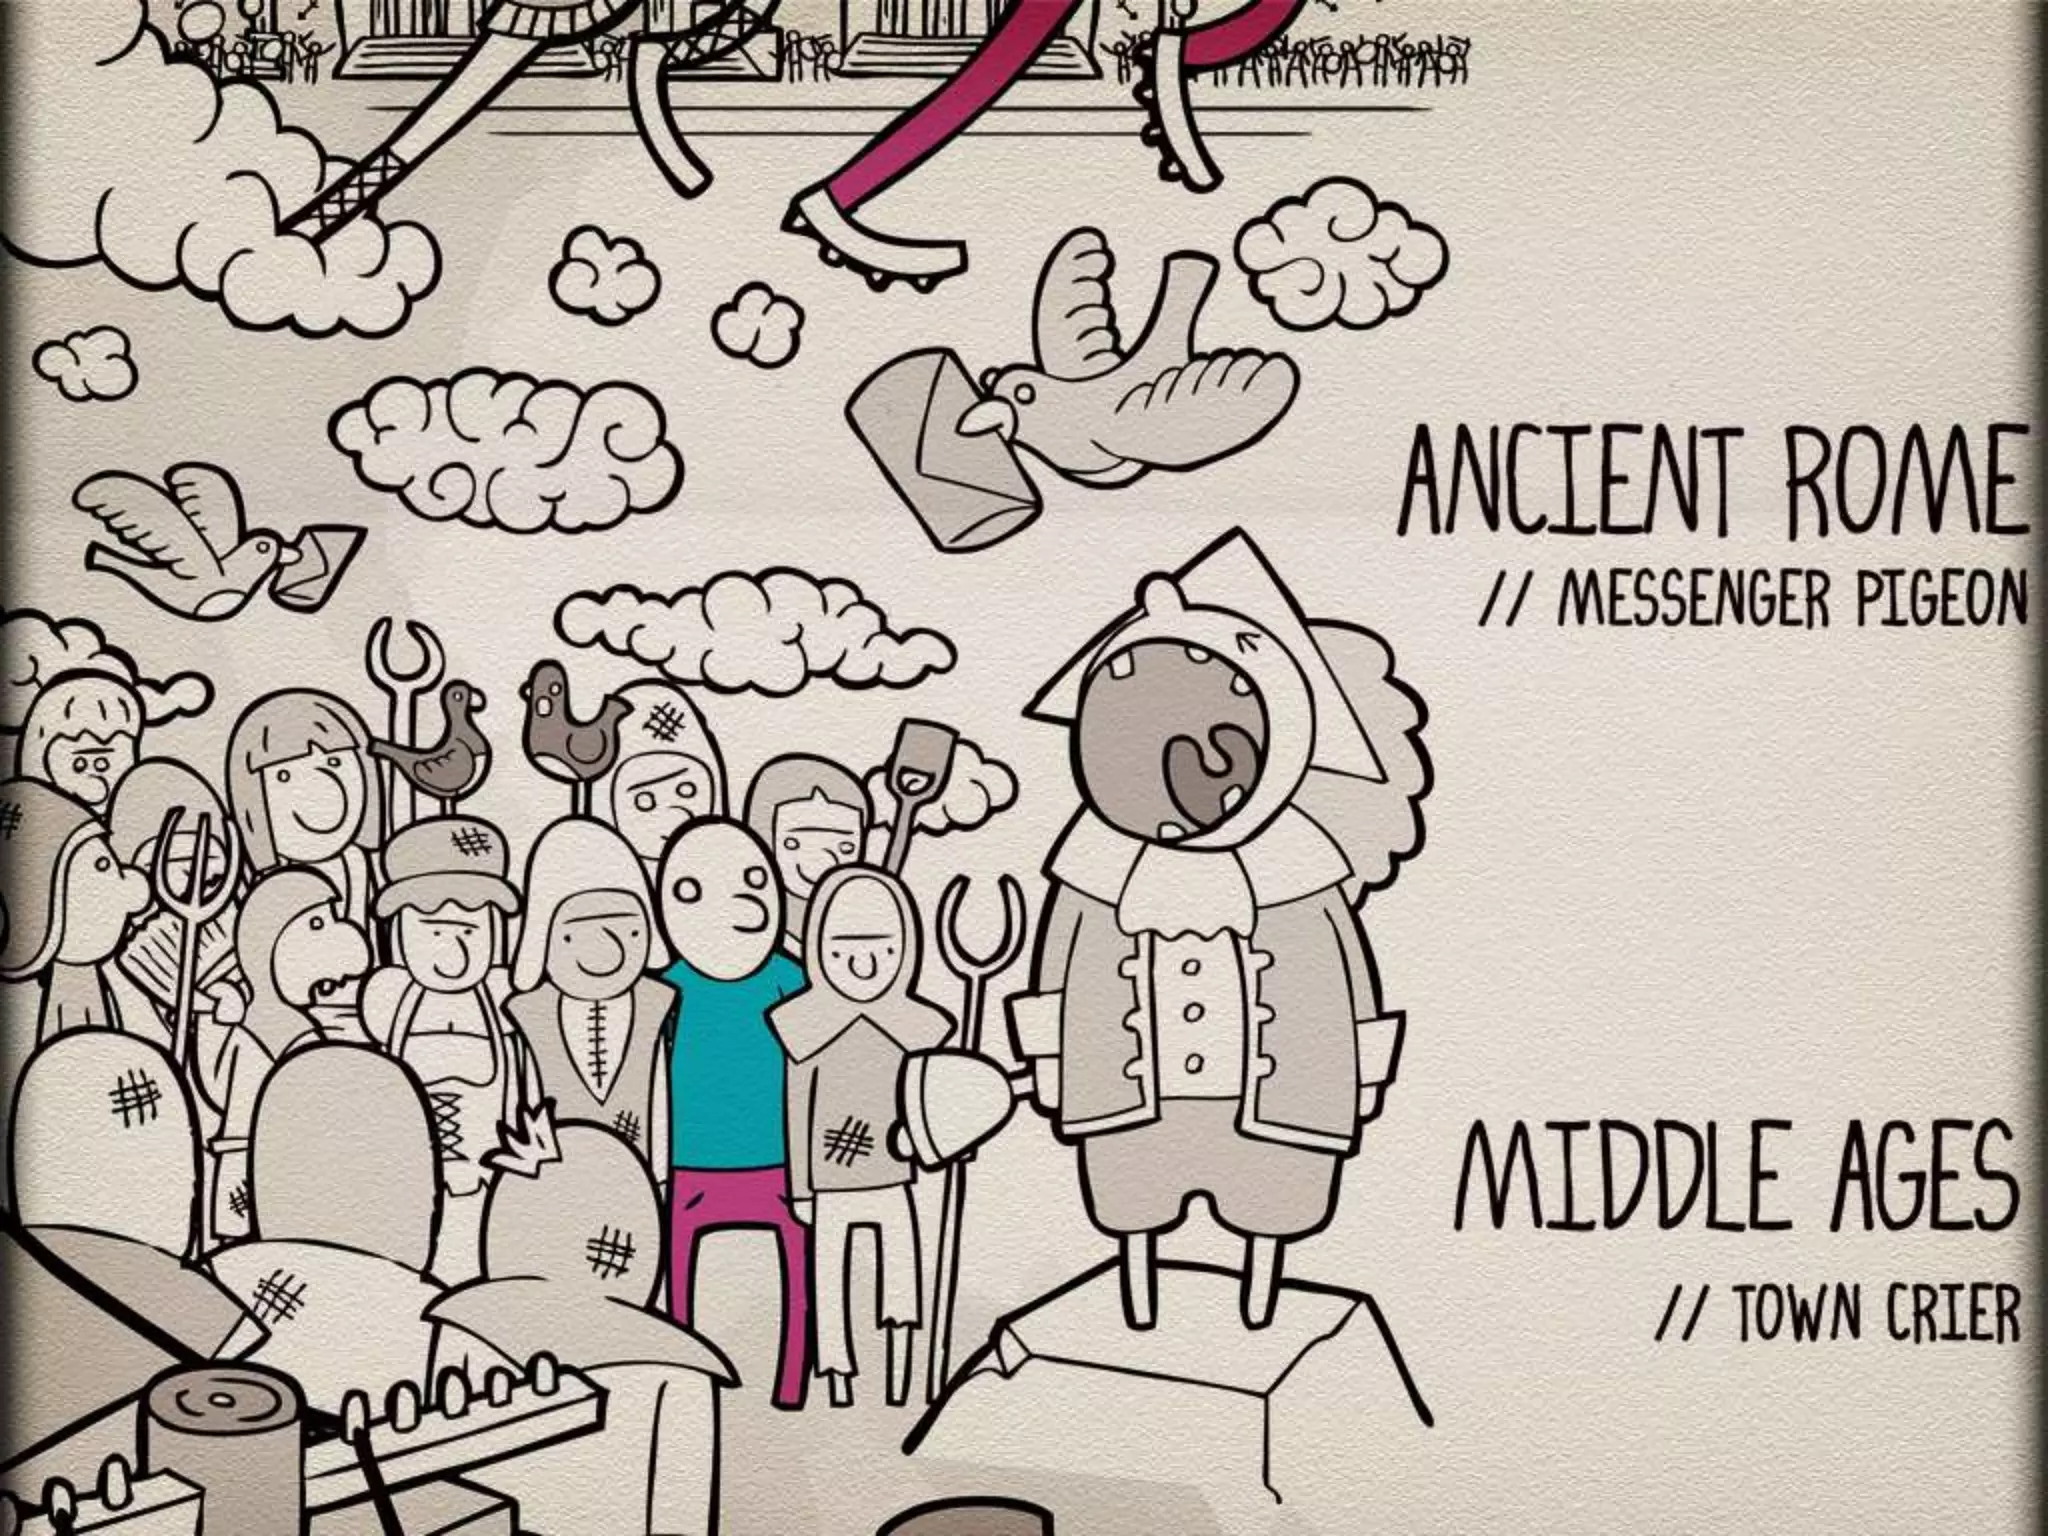 ANCIENT ROME
// MESSENGER PIGEON
MIDDLE AGES
// TOWN CRIER